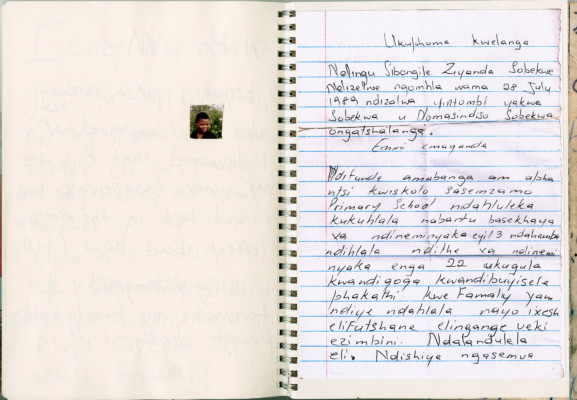 Ukuphuma kwelanga
Ndingu Sibongile Ziyanda Sobekwe
Ndizelwe ngomhla wama 28 July
1989 ndizalwa yintombi yakwa
Sobekwa u Nomasindiso Sobekwa
ongatshalanga.
Emini emaqanda
Ndifunde amabanga am apha
ntsi kwiskolo sasemzamo
Primary School ndahluleka
kukuhlala nabantu basekhaya
xa ndineminyaka eyi/3 ndahamba
ndihlala ndithe xa ndinemi
nyaka enga 22 ukugula
kwandigoga kwandibuyisela
phakathi kwe Familiy yam
ndiye ndahlala nayo ixesh
elifutshane elingange veki
ezimbini. Ndalandulela
eli. Ndishiya ngasemva